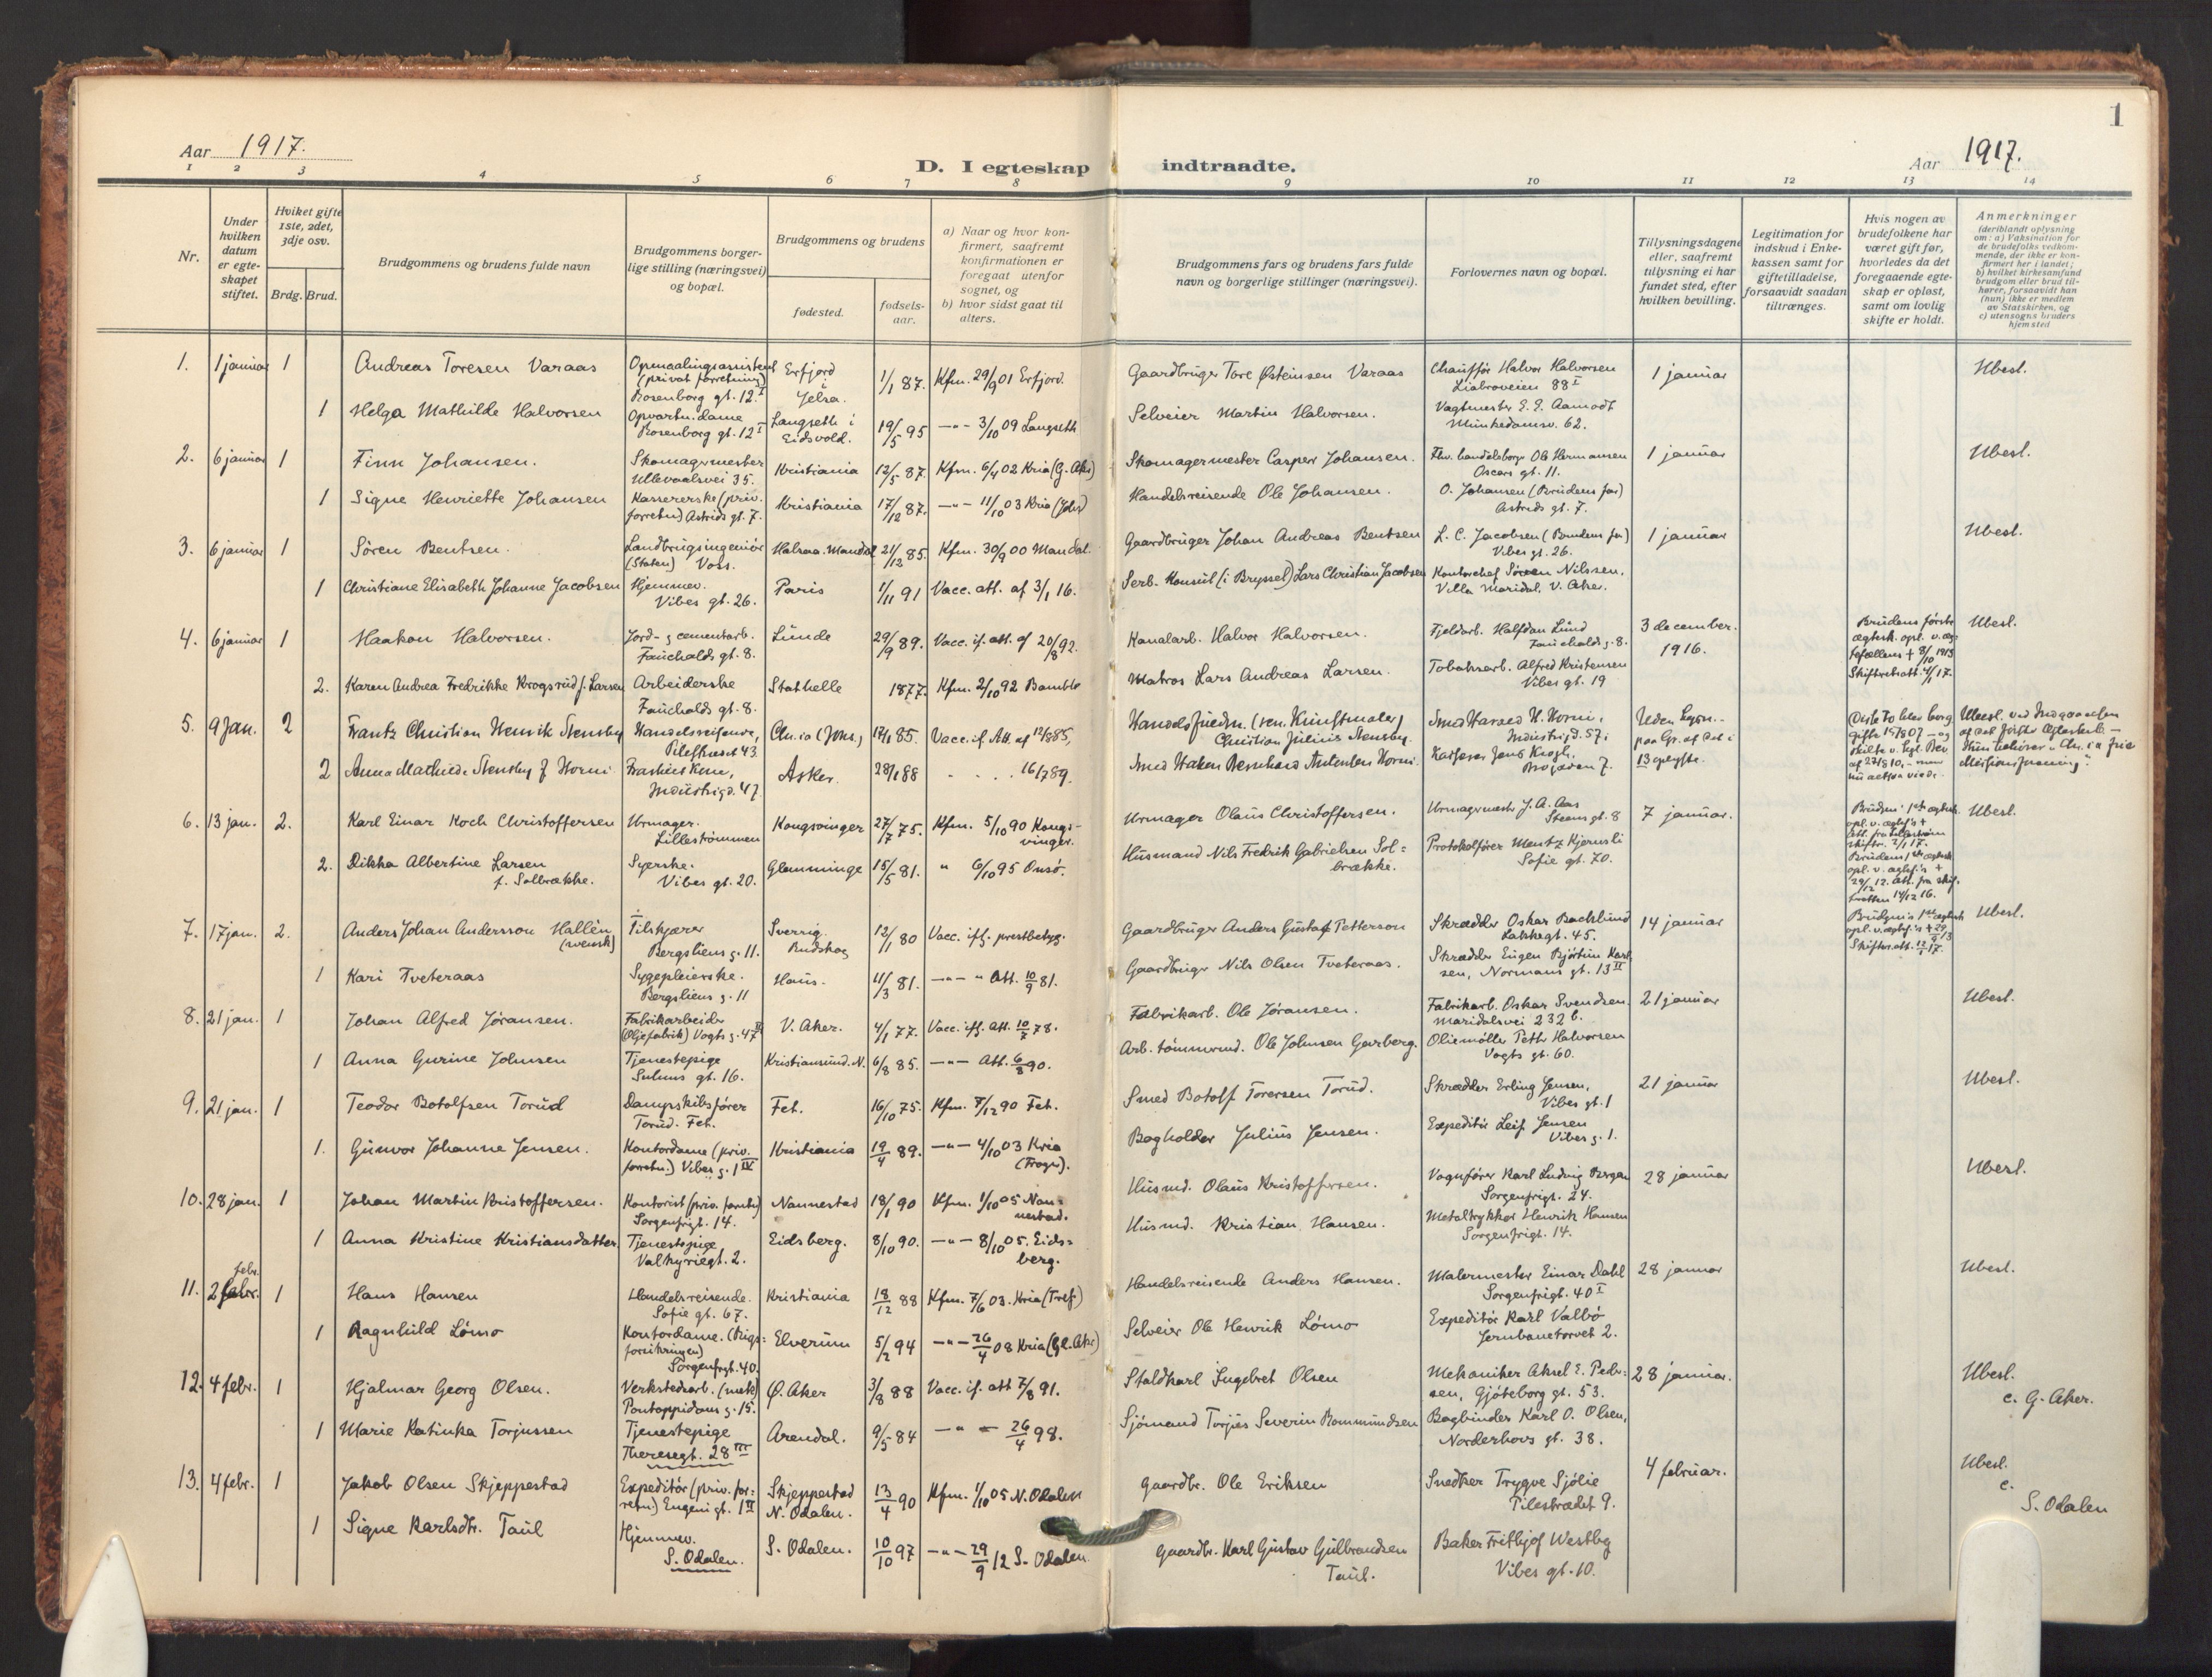 1
Aar 1917.
D. I egteskap indtraadte.
Aar 1917.
1 2 3 4 5 6 7 8 9 10 11 12 13 14
Nr.
Under hvilken datum er egte-skapet stiftet.
Hviket gifte 1ste, 2det, 3dje osv.
Brdg. Brud.
Brudgommens og brudens fulde navn
Brudgommens borger-lige stilling (næringsvei) og bopæl.
Brudgommens og brudens
fødested.
fødsels-aar.
a) Naar og hvor kon-firmert, saafremt konfirmationen er foregaat utenfor sognet, og
b) hvor sidst gaat til alters.
Brudgommens fars og brudens fars fulde navn og borgerlige stillinger (næringsvei).
Forlovernes navn og bopæl.
Tillysningsdagene eller, saafremt tillysning ei har fundet sted, efter hvilken bevilling.
Legitimation for indskud i Enke-kassen samt for giftetilladelse, forsaavidt saadan tiltrænges.
Hvis nogen av brudefolkene har været gift før, hvorledes da det foregaaende egte-skap er opløst, samt om lovlig skifte er holdt.
Anmerkninger (deriblandt oplysning om: a) Vaksination for de brudefolks vedkom-mende, der ikke er kon-firmert her i landet; b) hvilket kirkesamfund brudgom eller brud til-hører, forsaavidt han (hun) ikke er medlem av Statskirken, og c) utensogns bruders hjemsted
1. 1 januar 1 Andreas Toresen Varaas Opmaalingsassistent (privat forretning) Rosenborg gt. 12 I Erfjord i Jelsa. 1/1 87. Kfm. 29/9 01 Erfjord. Gaardbruger Tore Østeinsen Varaas Chauffør Halvor Halvorsen Liabroveien 88 I 1 januar Ubesl.
1 Helga Mathilde Halvorsen Opvartn. dame Rosenborg gt. 12 I Langseth i Eidsvold. 19/5 95 —"— 3/10 09 Langseth Selveier Martin Halvorsen. Vagtmester E. E. Aamodt Munkedamsv. 62.
2. 6 januar 1 Finn Johansen. Skomagermester Ullevaalsvei 35. Kristiania 12/5 87. Kfm. 6/4 02 Kria (G. Aker) Skomagermester Casper Johansen. Fhv. handelsborger Ole Hermansen Oscars gt. 11. 1 januar Ubesl.
1 Signe Henriette Johansen Kassererske (priv. forretn) Astrids gt. 7. Kristiania 17/12 87. —"— 11/10 03 Kria (Johs) Handelsreisende Ole Johansen. O. Johansen (Brudens far) Astrids gt. 7.
3. 6 januar 1 Sören Bentsen. Landbrugsingeniör (Staten) Voss. Halsaa. Mandal 21/12 85. Kfm. 30/9 00 Mandal. Gaardbruger Johan Andreas Bentsen L. C. Jacobsen (Brudens far) Vibes gt. 26. 1 januar Ubesl.
1 Christiane Elisabeth Johanne Jacobsen Hjemmev. Vibes gt. 26. Paris 1/11 91 Vacc. att. af 3/1 16. Serb. Konsul (i Bryssel) Lars Christian Jacobsen Kontorchef Sören Nilssen, Villa Maridal, V. Aker.
4. 6 januar 1 Haakon Halvorsen. Jord- & cementarb. Fauchalds gt. 8. Lunde 29/9 89. Vacc. if. att. af 20/8 92. Kanalarb. Halvor Halvorsen. Fjeldarb. Halfdan Lund Fauchalds g. 8. 3 december. 1916. Brudens förste ægtesk. opl. v. æg tefællens + 8/10 1913 Skifteretsatt. 4/1 17. Ubesl.
2. Karen Andrea Fredrikke Krogsrud f. Larsen Arbeiderske Fauchalds gt. 8. Stathelle 1877. Kfm. 2/10 92 Bamble Matros Lars Andreas Larsen. Tobaksarb. Alfred Kristensen Vibes gt. 19
5. 9 Jan. 2 Frantz Christian Henrik Stensby Handelsreisende, Pilestrædet 43 Chr.ia (Johs.) 17/1 85. Vacc. if. Att. af 12/8 85, Christian Julius Stensby. Smed Harald H. Horni, Industrigd. 57 Ubesl.
2 Anna Mathilde Stensby f. Horni Industrigd. 47 Asker. 28/1 88 16/7 89. Smed Haken Bernhard Antonsen Horni. Kasserer Jens Krogh,
6. 13 jan. 2. Karl Einar Koch Christoffersen Urmager. Lillestrømmen Kongsvinger 27/7 75. Kfm. 5/10 90 Kongs-vinger. Urmager Olaus Christoffersen. Urmagermester J. A. Aas Steens gt. 8 7 januar. Ubesl.
2. Dikka Albertine Larsen f. Solbrække. Syerske. Vibes gt. 20. Glemminge 15/5 81. " 6/10 95 Onsö. Husmand Nils Fredrik Gabrielsen Sol=brække. Protokolfører Mentz Kjernsli Sofie gt. 70.
7. 17 jan. 2. Anders Johan Andersson Hallén (svensk) Filskjærer Bergsliens g. 11. Sverrig. Rudskog 12/1 80 Vacc. iff. prestbetyg. Gaardbruger Anders Gustaf Petterson Skrædder Oskar Backlund Lakkegt. 45. 14 januar Ubesl.
1 Kari Tveteraas Sygepleierske. Bergsliens g. 11 Haus. 11/3 81. —"— " Att. 10/9 81. Gaardbruger Nils Olsen Tveteraas. Skrædder Eugen Björtun Karl sen, Normans gt. 13 II
8. 21 jan. 1 Johan Alfred Jöransen. Fabrikarbeider (Oljefabrik) Vogts g. 47 II V. Aker. 4/1 77. Vacc. iff. att. 10/7 78. Fabrikarb. Ole Jöransen. Fabrikarb. Oskar Svendsen. Maridalsvei 232 b. 21 januar Ubesl.
1 Anna Gurine Johnsen Tjenestepige Suhms gt. 16. Kristiansund. N. 6/8 85. —"— Att. 6/8 90. Arb. tömmermd. Ole Johnsen Garberg. Oliemöller Petter Halvorsen Vogts gt. 60.
9. 21 jan. 1 Teodor Botolfsen Torud Dampskibsfører Torud. Fet. Fet. 16/10 75. Kfm. 7/12 90 Fet. Smed Botolf Torersen Torud. Skrædder Erling Jensen, Vibes gt. 1 21 januar Ubesl.
1. Gunvor Johanne Jensen. Kontordame (priv. forretn.) Vibes g. 1 IV Kristiania 19/4 89. —"— 4/10 03 Kria (Frogn). Bogholder Julius Jensen. Expeditör Leif Jensen Vibes g. 1.
10. 28 jan. 1 Johan Martin Kristoffersen. Kontorist (priv. forretn) Sorgenfrigt. 14. Nannestad 18/1 90 Kfm. 1/10 05 Nan=nestad. Husmd. Olaus Kristoffersen. Vognfører Karl Ludvig Bergan Sorgenfrigt. 24. 28 januar Ubesl.
1 Anna Kristine Kristiansdatter. Tjenestepige Valkyriegt. 2. Eidsberg. 8/10 90. —"— 8/10 05. Eids=berg. Husmd. Kristian Hansen. Metaltrykker Henrik Hansen Sorgenfrigt. 14.
11. 2 febr. 1 Hans Hansen Handelsreisende. Sofie gt. 67. Kristiania 18/12 88 Kfm. 7/6 03. Kria (Tref.) Handelsreisende Anders Hansen. Malermester Einar Dahl Sorgenfrigt. 40 I 28 januar Ubesl.
1 Ragnhild Lömo Kontordame. (Rigs=forsikringen) Sorgenfrigt. 40. Elverum 5/2 94 —"— 26/4 08 Kria (Gl. Aker) Selveier Ole Henrik Lömo Expeditör Karl Valbö Jernbanetorvet 2.
12. 4 febr. 1 Hjalmar Georg Olsen. Verkstedsarb. (mek) Pontoppidans g. 15. Ø. Aker 3/8 88 Vacc. if. att 7/8 91. Staldkarl Ingebret Olsen Mekaniker Aksel E. Peder-sen, Gjöteborg gt. 53. 28 januar. Ubesl. c. G. Aker.
1 Marie Katinka Torjussen Tjenestepige Theresegt. 28 III Arendal. 9/5 84 —"— 26/4 98. Sjömand Torjus Severin Bommundsen Bogbinder Karl O. Olsen, Norderhovs gt. 38.
13. 4 febr. 1 Jakob Olsen Skjeppestad Expeditör (priv. for=retn.) Eugeni gt. 1 II Skjeppestad N. Odalen. 13/4 90 Kfm. 1/10 05 N. Odalen Gaardbr. Ole Eriksen Snedker Trygve Sjölie Pilestrædet 9. 4 februar. Ubesl. c. S. Odalen
1 Signe Karlsdtr. Taul Hjemmev. S. Odalen. S. Odalen. 10/10 97 —"— 29/9 12 S. Odalen. Gaardbr. Karl Gustav Gulbrandsen Taul. Baker Frithjof Westby Vibes gt. 10.